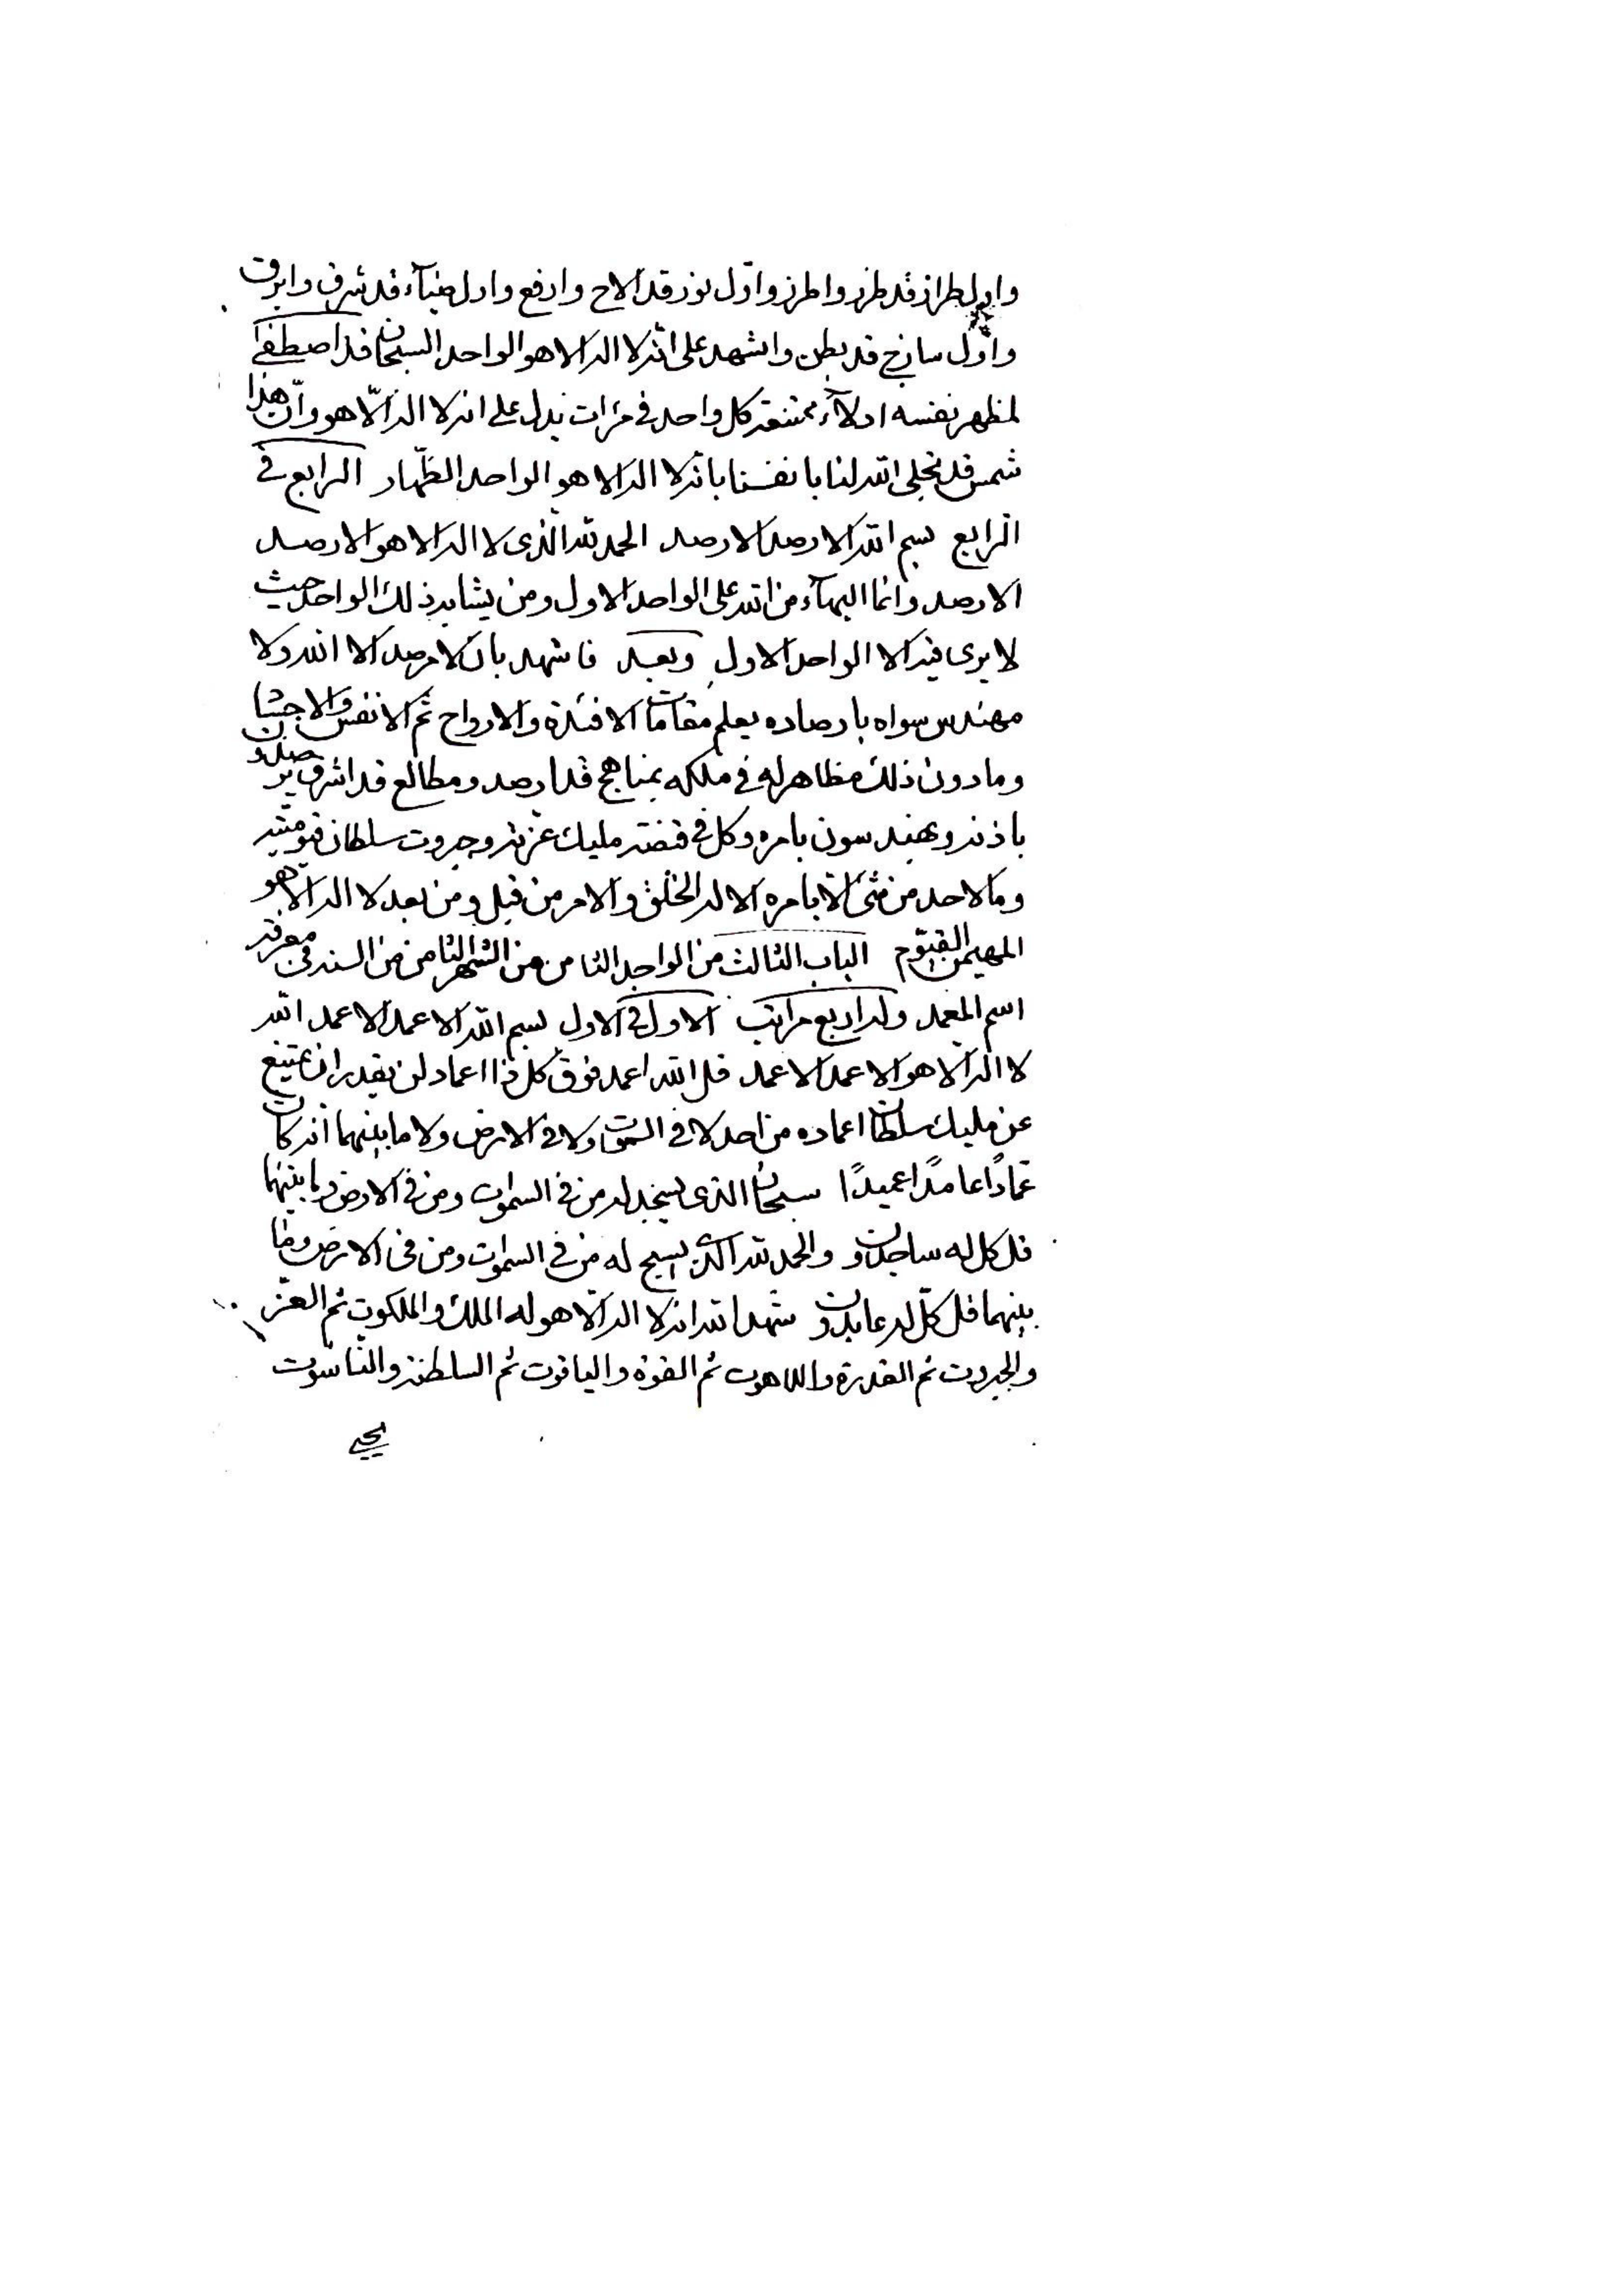 واول طراز قد طرز واطرز واول نور قد الاح وارفع واول ضيآء قد شرق وابرق
واول ساذج قد بطن واشهد على انه لا اله الا هو الواحد السبحان قد اصطفى
لمظهر نفسه ادلآء ممتنعه كل واحد فى مرات يدل على انه لا اله الّا هو وان هذا
شمس قد تجلى الله لنا بانفسنا بانه لا اله الا هو الواحد الظهار الرابع فى
الرابع بسم الله الارصد الارصد الحمد لله الذى لا اله الا هو الارصد
الارصد وانما البهآء من الله على الواحد الاول ومن يشابه ذلك الواحد حيث
لا يرى فيه الا الواحد الاول وبعد فاشهد بان لا مرصد الا الله ولا
مهندس سواه بارصاده يعلم مقامات الافئدة والارواح ثم الانفس والاجساد
وما دون ذلك مظاهر له فى ملكه بمناهج قد ارصد ومطالع قد اشرق يرصدون
باذنه ويهندسون بامره وكل فى قبضته مليك عزته وجبروت سلطان قيوميته
وما لاحد من شئ الا بامره الا له الخلق والامر من قبل ومن بعد لا اله الا هو
المهيمن القيوم الباب الثالث من الواحد الثامن من الشهر الثامن من السنه فى معرفة
اسم المعمد وله اربع مراتب الاول فى الاول بسم الله الاعمد الاعمد الله
لا اله الا هو الاعمد الاعمد قل الله اعمد فوق كل ذا اعماد لن يقدر ان يمتنع
عن مليك سلطان اعماده من احد لا فى السموات ولا فى الارض ولا ما بينهما انه كان
عمادًا عامدًا عميدًا سبحان الذى يسجد له من فى السموات ومن فى الارض وما بينهما
قل كل له ساجدون والحمد لله الذى يسبح له من فى السموات ومن فى الارض وما
بينهما قل كلّ له عابدون شهد الله انه لا اله الّا هو له الملك والملكوت ثم العز
والجبروت ثم القدرة واللاهوت ثم القوة والياقوت ثم السلطنة والناسوت
يحيى